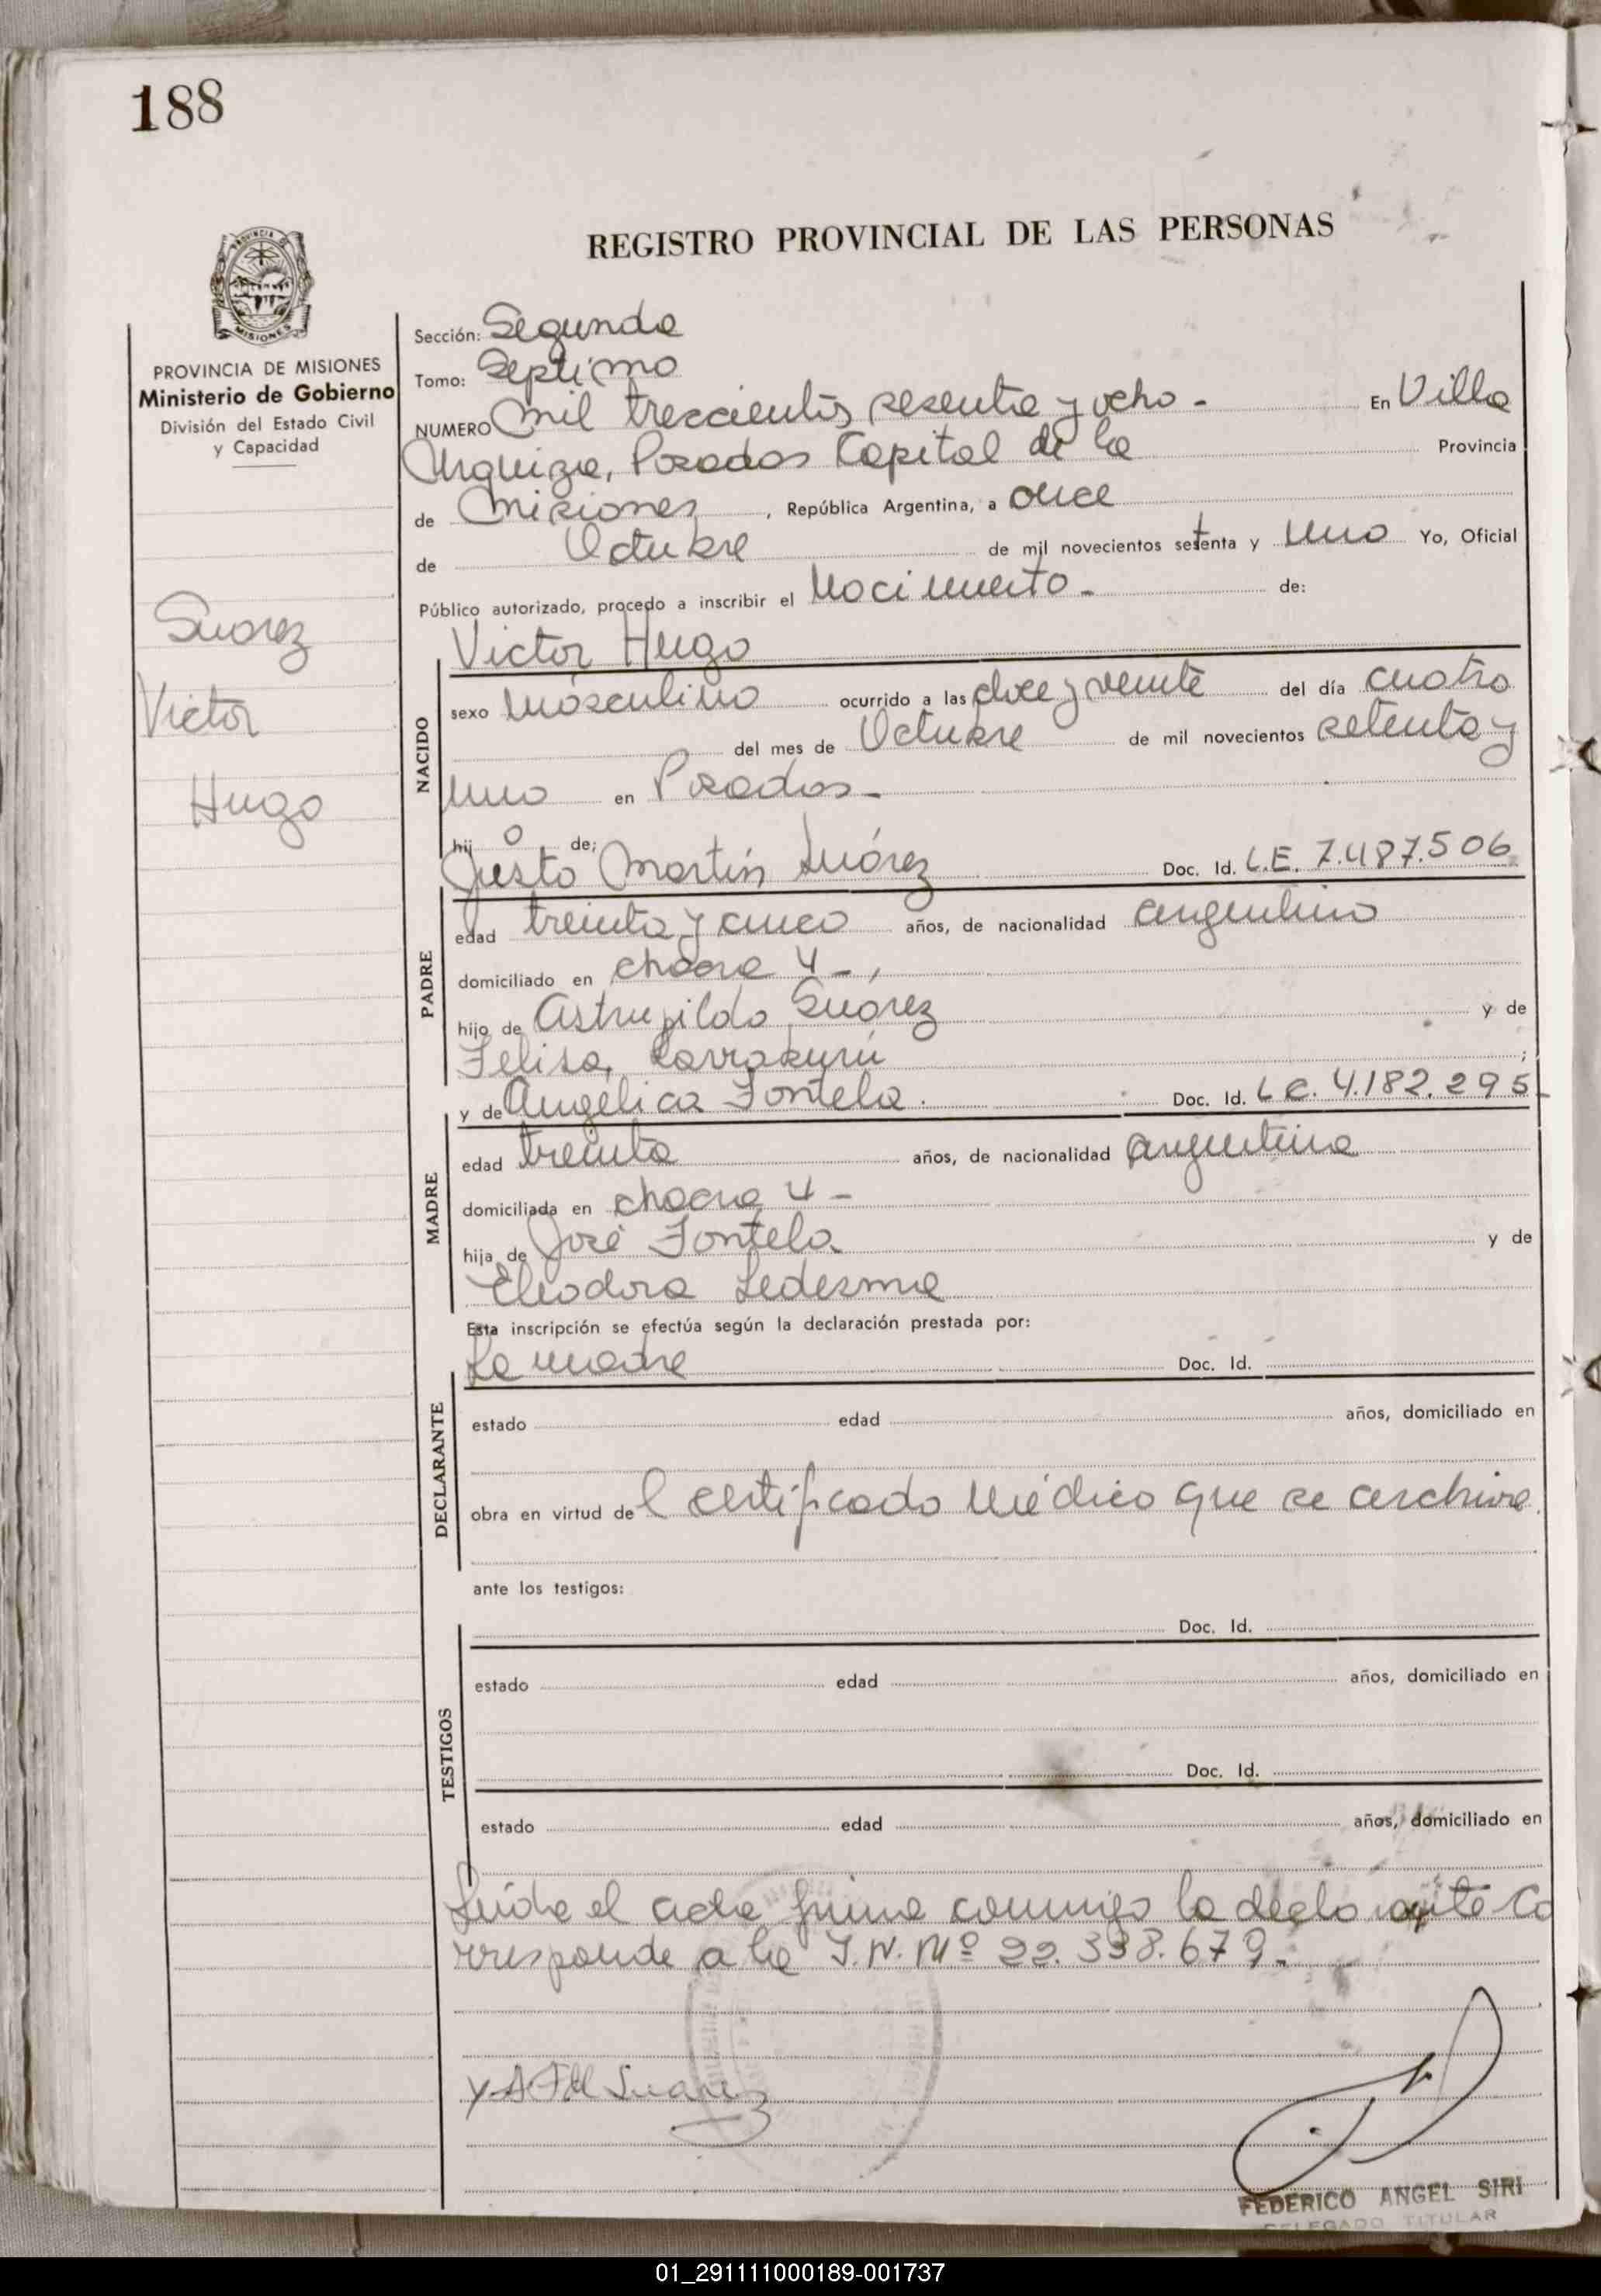 188
REGISTRO PROVINCIAL DE LAS PERSONAS
PROVINCIA DE MISIONES
Ministerio de Gobierno
División del Estado Civil
y Capacidad
Suarez
Victor
Hugo
Sección: Segunda
Tomo: Septimo
NUMERO mil trescientos sesenta y ocho - En Villa
Urquiza, Posadas Capital de la Provincia
de Misiones, República Argentina, a once
de Octubre de mil novecientos setenta y uno Yo, Oficial
Público autorizado, procedo a inscribir el Nacimiento - de:
NACIDO
Victor Hugo
sexo masculino ocurrido a las doce y veinte del día cuatro
del mes de Octubre de mil novecientos setenta y
uno en Posadas -
hijo de;
Justo Martín Suárez Doc. Id. L.E. 7.487.506
PADRE
edad treinta y cinco años, de nacionalidad argentino
domiciliado en chacra 4 - ,
hijo de Suárez y de
Felisa ;
y de Angélica Fontela. Doc. Id. L C. 4.182.295
MADRE
edad treinta años, de nacionalidad argentina
domiciliada en chacra 4 -
hija de José Fontela y de
Eleodora Ledesma
Esta inscripción se efectúa según la declaración prestada por:
La madre Doc. Id.
DECLARANTE
estado edad años, domiciliado en
obra en virtud del certificado médico que se archiva.
ante los testigos:
Doc. Id.
TESTIGOS
estado edad años, domiciliado en
Doc. Id.
estado edad años, domiciliado en
Leída el acta firma conmigo la declarante Co
rresponde a la I.N. Nº 22.338.679 -
Suarez
FEDERICO ANGEL SIRI
DELEGADO TITULAR
01_291111000189-001737